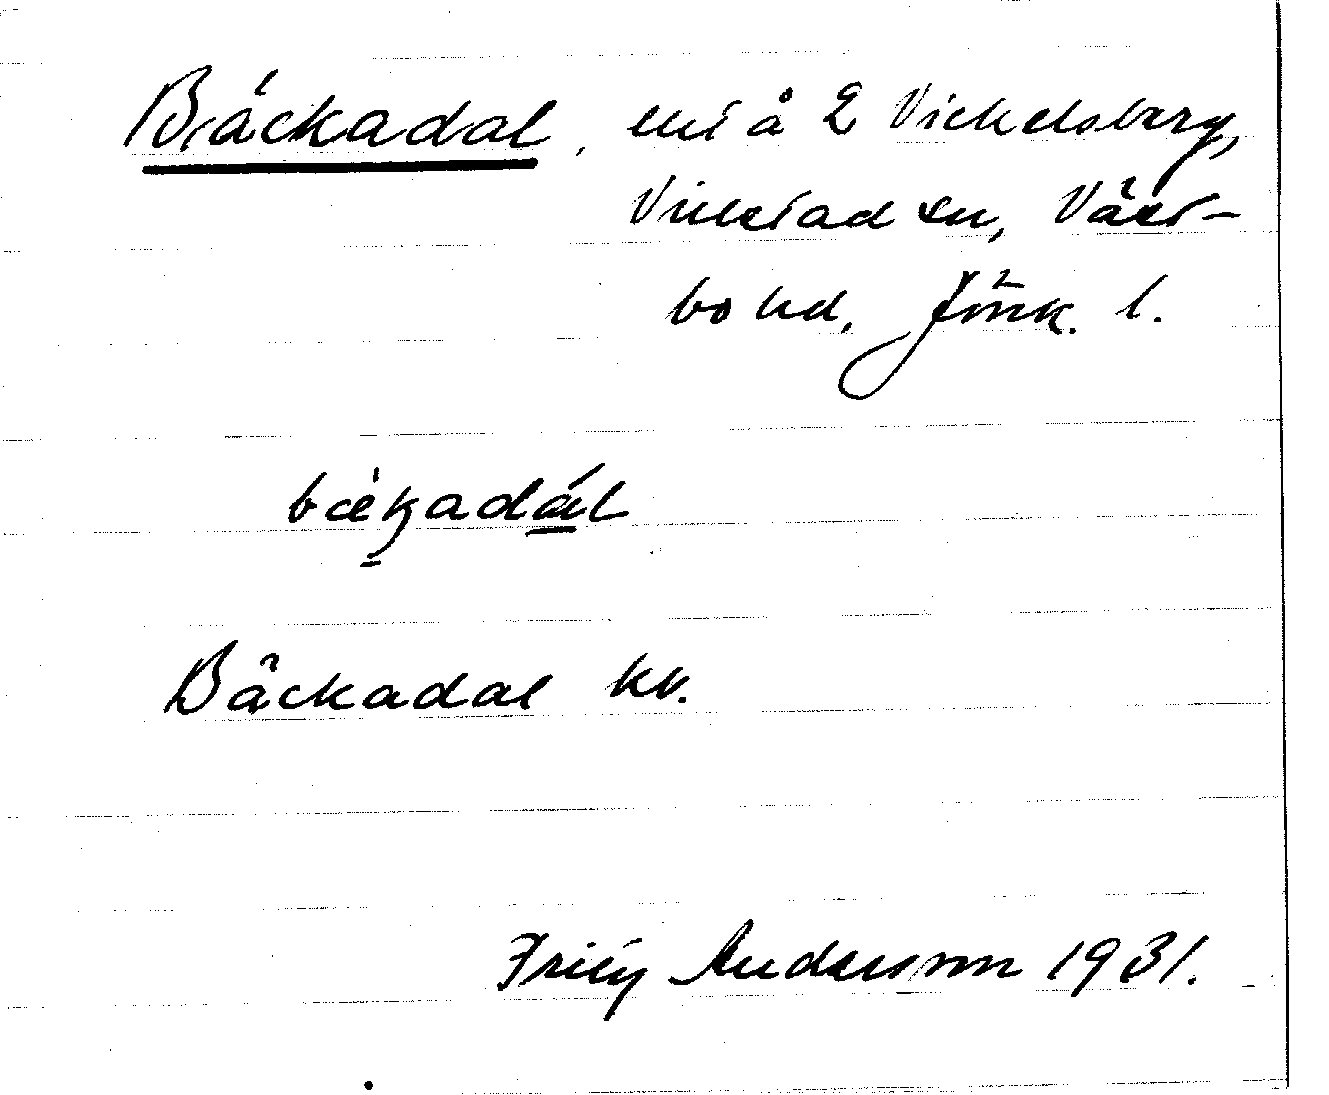 Bäckadal, ent å 2 Vickelsberg,
Vrigstad sn, Väst-
bo hd, Jönk. l.
bækadál
Bäckadal kv.
Andersson 1931.